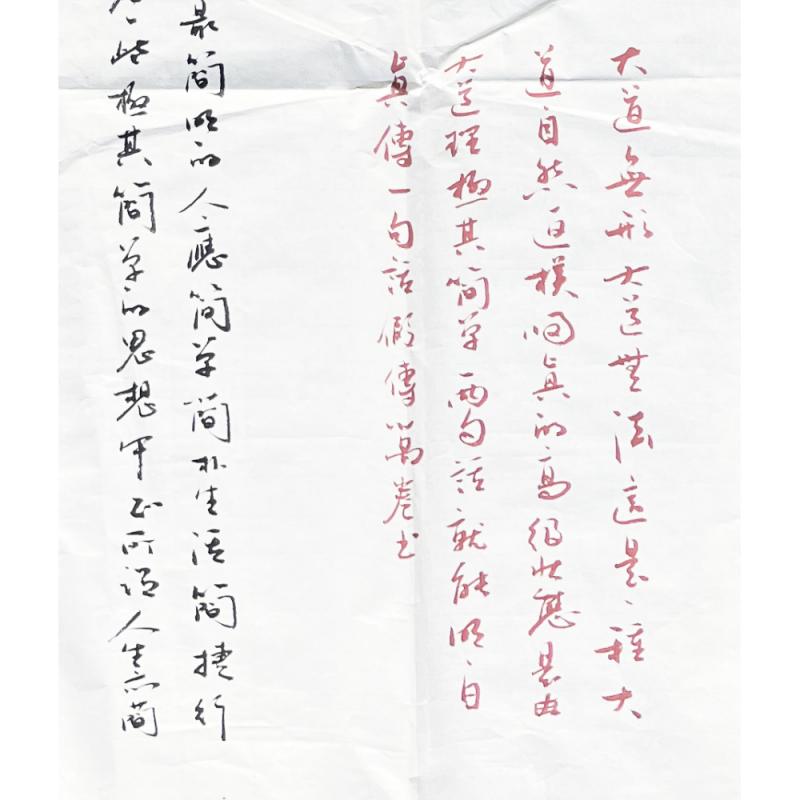 大道無形大道無法這是一種大
道自然返樸歸真的高級狀態
大道理極其簡單兩句話就能明白
真傳一句話假傳萬卷書
最簡明的人應簡單簡朴生活簡捷行
些極其簡單的思想正所謂人生亦簡